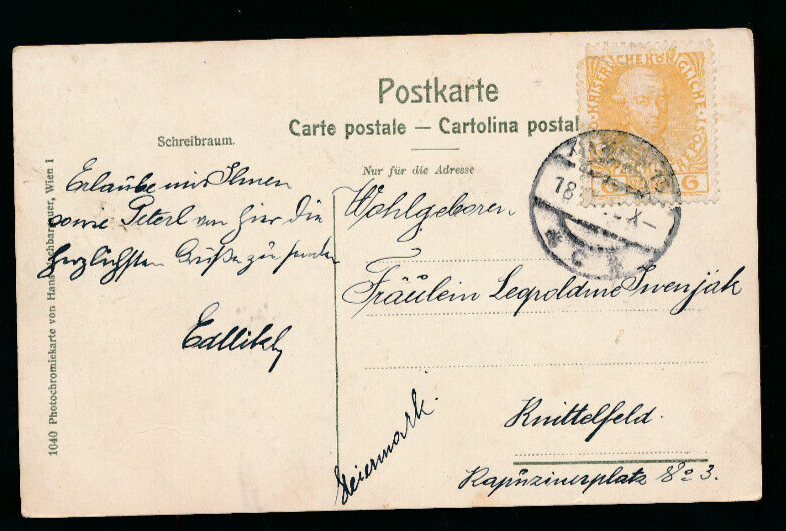 Postkarte
Carte postale — Cartolina postal
Schreibraum.
Nur für die Adresse
Erlaube mir Ihnen
sowie Peterl von hier die
herzlichsten Grüße zu senden
Edllikly
Wohlgeboren
Fräulein Leopoldine Swenjak
Knittelfeld.
Kapuzinerplatz No 3.
Steiermark.
1040 Photochromiekarte von Hans Wien I
KAISERLICHE KÖNIGLICHE POST
6 6
18